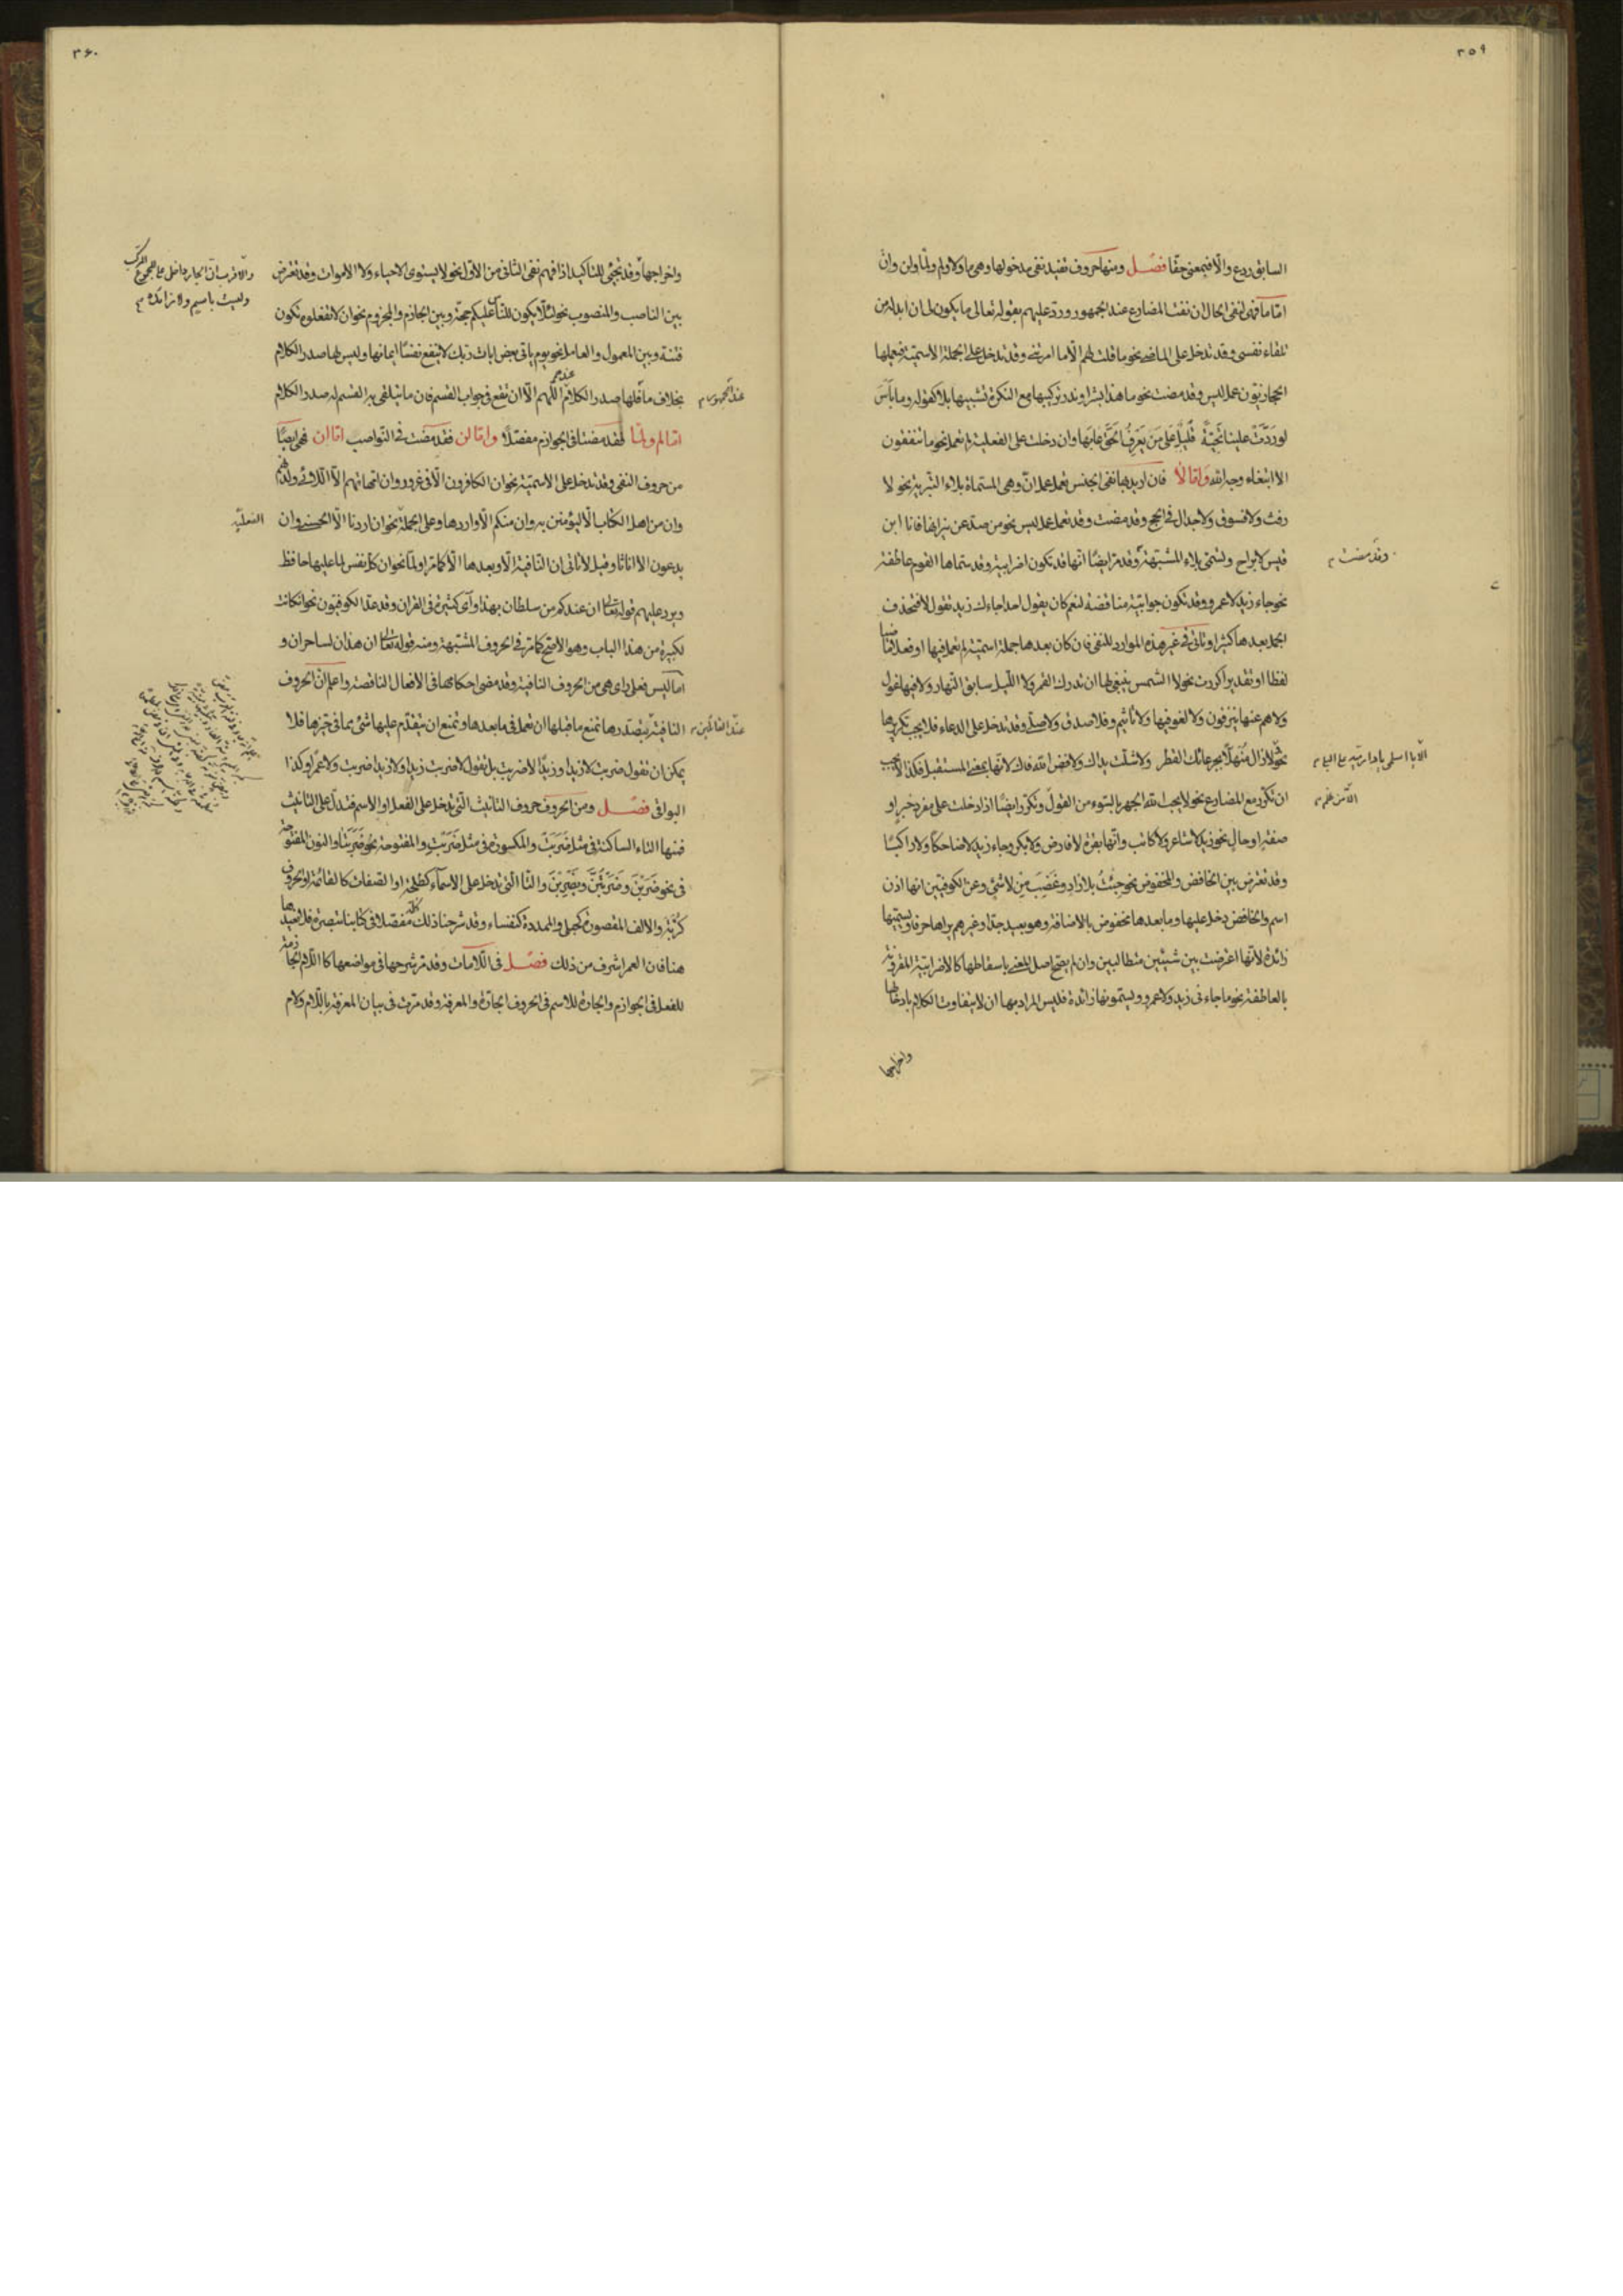 ٣٥٩
السابق ردع والا فبمعنى حقا فصل ومنها حروف تفيد نفي مدخولها وهي ما ولا ولم ولما ولن وان
اما ما فهي لنفي الحال ان نفت المضارع عند الجمهور ورد عليهم بقوله تعالى ما يكون لي ان ابدله من
تلقاء نفسي وقد تدخل على الماضي نحو ما قلت لهم الا ما امرتني وقد تدخل على الجملة الاسمية فيعملها
الحجازيون عمل ليس وقد مضت نحو ما هذا بشرا وندر تركيبها مع النكرة تشبيها بلا كقوله وما بأس
لو ردت علينا تحية قليل على من يعرف الحق عابها وان دخلت على الفعلية لم تعمل نحو ما تنفقون
الا ابتغاء وجه الله واما لا فان اريد بها نفي الجنس تعمل عمل ان وهي المسماة بلاء التبرية نحو لا
رفث ولا فسوق ولا جدال في الحج وقد مضت وقد تعمل عمل ليس نحو من صد عن نيرانها فانا ابن
قيس لا براح وتسمى بلاء المشبهة وقد مر ايضا انها قد تكون اضرابية وقد سماها القوم عاطفة
وقد مضت
نحو جاء زيد لا عمرو وقد تكون جوابية مناقضة لنعم كان يقول احد اجاءك زيد تقول لا فتحذف
الجمل بعدها كثيرا وتاتي في غير هذه الموارد للنفي فان كان بعدها جملة اسمية لم تعمل فيها او فعلا ماضيا
لفظا او تقديرا كررت نحو لا الشمس ينبغي لها ان تدرك القمر ولا الليل سابق النهار ولا فيها غول
ولا هم عنها ينزفون ولا لغو فيها ولا تأثيم وفلا صدق ولا صلى وقد تدخل على الدعاء فلا يجب تكريرها
نحو لا زال منهلا بجرعائك القطر ولا شلت يداك ولا فض الله فاك لانها بمعنى المستقبل فكذا لا يجب
الا يا اسلمي يا دار مي على البلى
ان تكرر مع المضارع نحو لا يحب الله الجهر بالسوء من القول وتكرر ايضا اذا دخلت على مفرد خبر او
الا من ظلم
صفة او حال نحو زيد لا شاعر ولا كاتب وانها بقرة لا فارض ولا بكر وجاء زيد لا ضاحكا ولا راكبا
وقد تعرض بين الخافض والمخفوض نحو جئت بلا زاد وغضب من لا شيء وعن الكوفيين انها اذن
اسم والخافض دخل عليها وما بعدها مخفوض بالاضافة وهو بعيد جدا وغيرهم يراها حرفا ويسميها
زائدة لانها اعترضت بين شيئين متطالبين وان لم يصح اصل المعنى باسقاطها كالاضرابية المقرونة
بالعاطفة نحو ما جاءني زيد ولا عمرو ويسمونها زائدة فليس المراد بها ان لا يتفاوت الكلام بادخالها
واخراجها
٣۶٠
واخراجها وقد تجيء للتاكيد اذا فهم نفي الثاني من الاول نحو لا يستوي الاحياء ولا الاموات وقد تعرض
والاقرب ان الجار داخل على مجموع المركب
وليست باسم ولا زائدة
بين الناصب والمنصوب نحو لئلا يكون للناس عليكم حجة وبين الجازم والمجزوم نحو ان لا تفعلوه تكون
فتنة وبين المعمول والعامل نحو يوم ياتي بعض ايات ربك لا ينفع نفسا ايمانها وليس لها صدر الكلام
بخلاف ما فلها صدر الكلام عندهم اللهم الا ان تقع في جواب القسم فان ما يتلقى به القسم له صدر الكلام
عند الجمهور
اما لم ولما فقد مضتا في الجوازم مفصلا واما لن فقد مضت في النواصب اما ان فهي ايضا
من حروف النفي وقد تدخل على الاسمية نحو ان الكافرون الا في غرور وان امهاتهم الا اللائي ولدنهم
وان من اهل الكتاب الا ليؤمنن به وان منكم الا واردها وعلى الجملة نحو ان اردنا الا الحسنى وان
الفعلية
يدعون الا اناثا وقيل لا تاتي ان النافية الا وبعدها الا كما مر او لما نحو ان كل نفس لما عليها حافظ
ويرد عليهم قوله تعالى ان عندكم من سلطان بهذا وآي كثيرة في القران وقد عد الكوفيون نحو ان كانت
لكبيرة من هذا الباب وهو الاصح كما مر في الحروف المشبهة ومنه قوله تعالى ان هذان لساحران و
اما ليس فعلى راي هي من الحروف النافية وقد مضى احكامها في الافعال الناقصة واعلم ان الحروف
النافية بتصدرها تمنع ما قبلها ان تعمل في ما بعدها وتمنع ان يتقدم عليها شيء مما في حيزها فلا
يمكن ان تقول ضربت لا زيدا وزيدا لا ضربت بل تقول لا ضربت زيدا ولا زيدا ضربت ولا عمرا وكذا
البواقي فصل ومن الحروف حروف التانيث التي تدخل على الفعل او الاسم فتدل على التانيث
فمنها التاء الساكنة في مثل ضربت والمكسورة في مثل ضربت والمفتوحة نحو ضربتا والنون المفتوحة
في نحو ضربن وضربتن ويضربن والتا التي تدخل على الاسماء كطلحة او الصفات كالقائمة او الحروف
كربت والالف المقصورة كحبلى والممدودة كنفساء وقد شرحنا ذلك كله مفصلا في كتابنا تبصرة فلا نعيدها
هنا فان العمر اشرف من ذلك فصل في اللامات وقد مر شرحها في مواضعها كا اللام الجازمة
للفعل في الجوازم والجارة للاسم في الحروف الجارة والمعرفة وقد مرت في بيان المعرفة باللام ولام